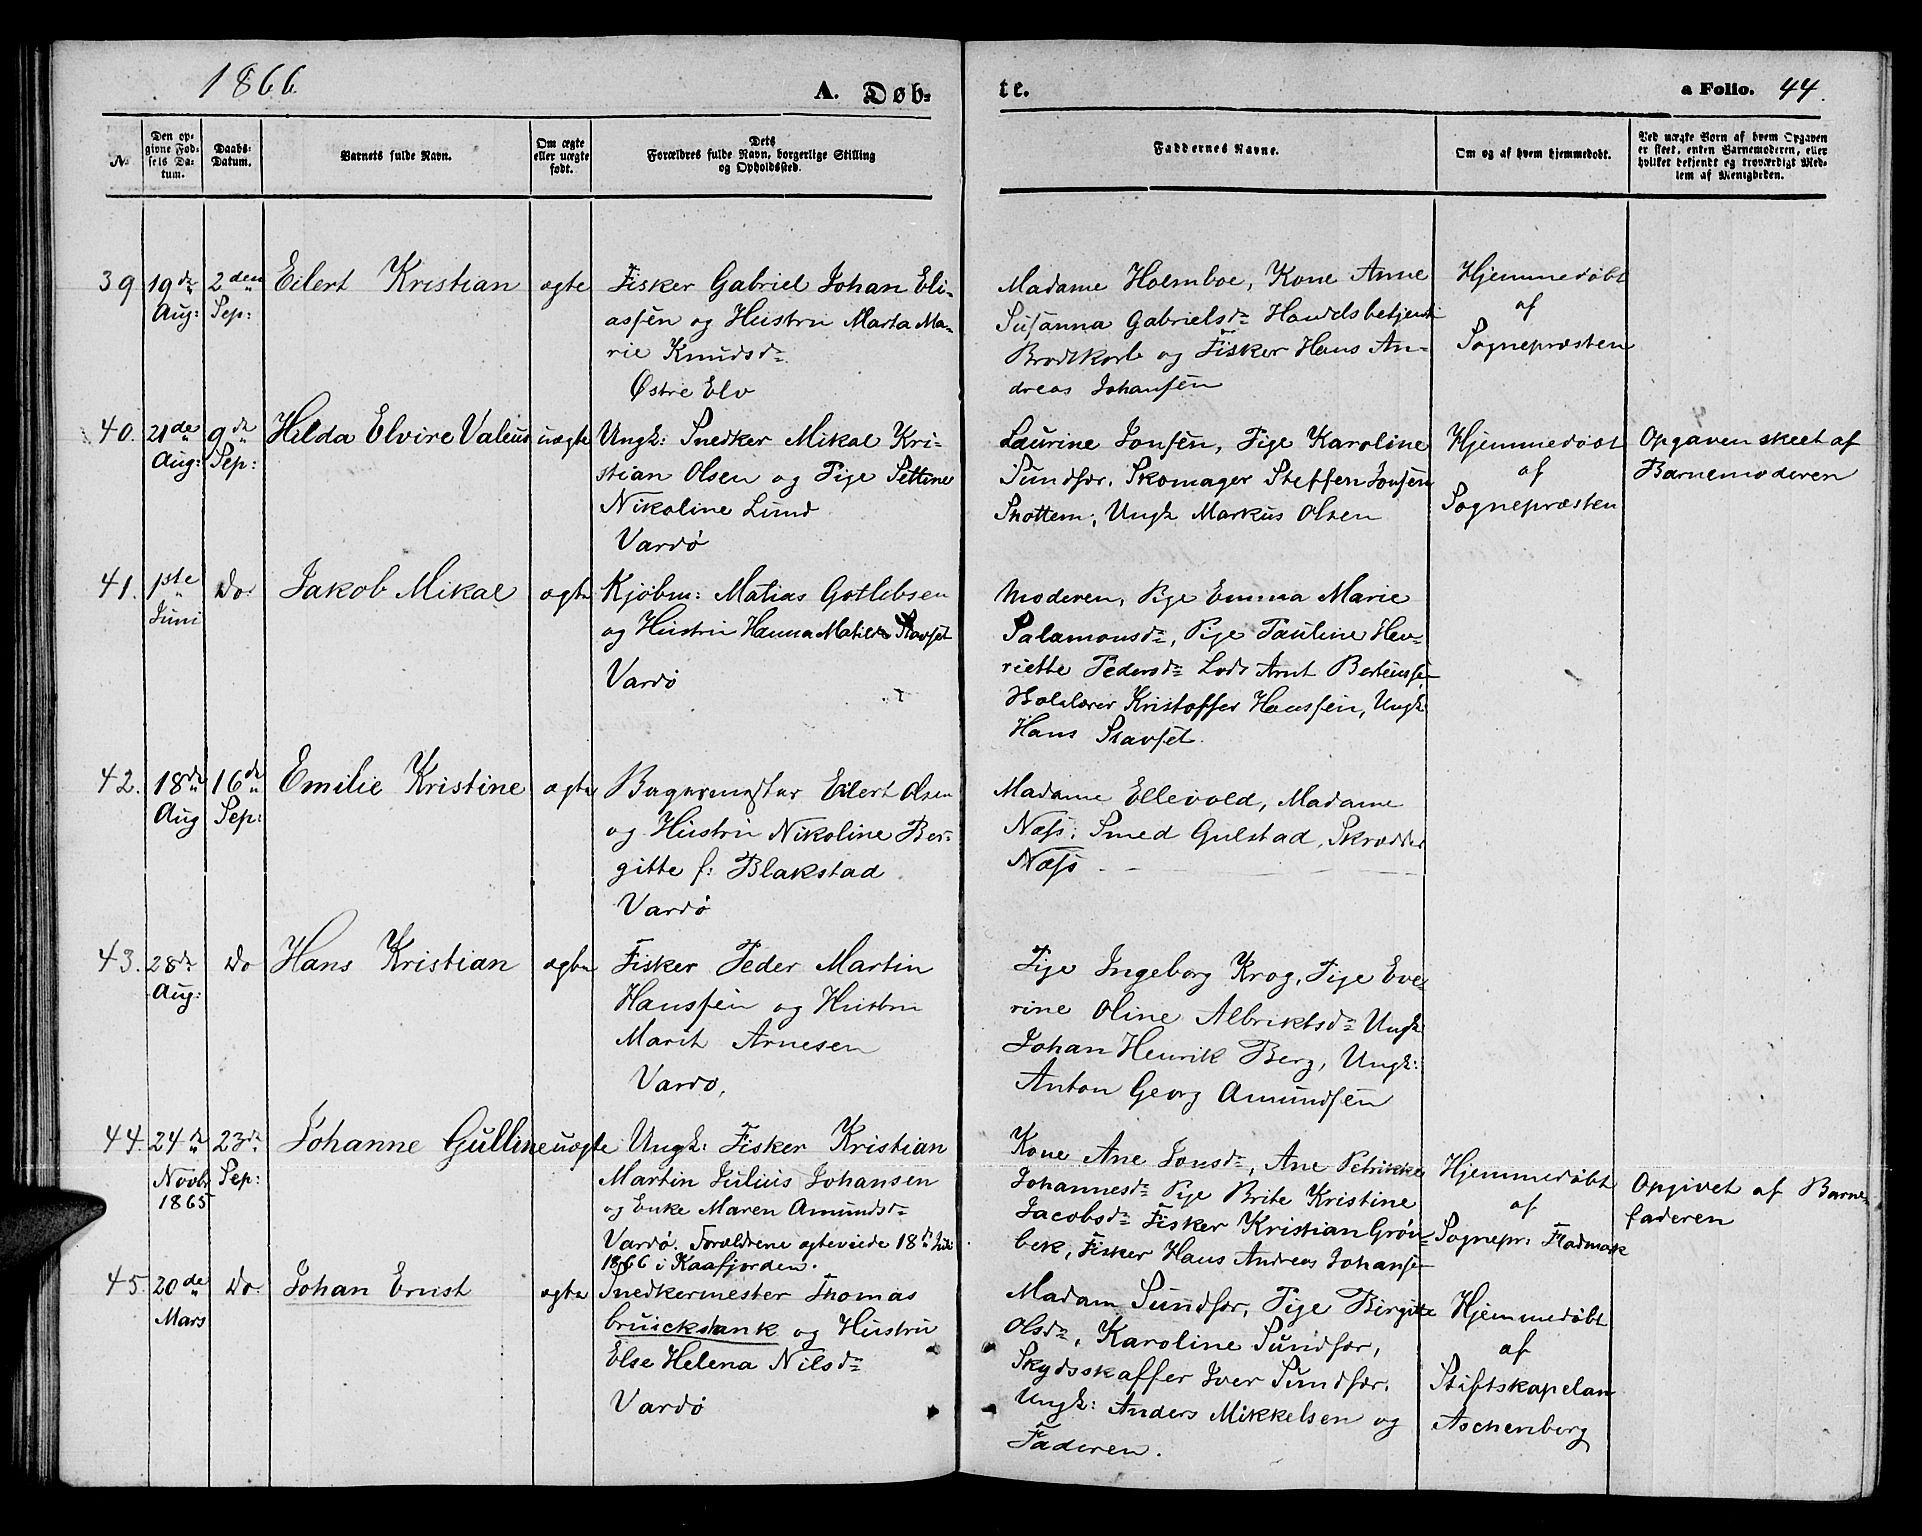 1866
A. Døb-
te.
a Folio. 44.
No
Den op-
givne Fød-
sels Da-
tum.
Daabs-
Datum.
Barnets fulde Navn.
Om ægte
eller uægte
født.
Dets
Forældres fulde Navn, borgerlige Stilling
og Opholdssted.
Faddernes Navne.
Om og af hvem hjemmedøbt.
Ved uægte Born af hvem Opgaven
er skeet, enten Barnemoderen, eller
hvilket bekjendt og troværdigt Med-
lem af Menigheden.
39
19de
Aug:
2den
Sep:
Eilert Kristian
ægte
Fisker Gabriel Johan Eli-
assen og Hustru Marta Ma-
rie Knudsd.
Østre Elv
Madame Holmboe, Kone Anne
Susanna Gabrielsd. Handelsbetjent
Brodtkorb og Fisker Hans An-
dreas Johansen
Hjemmedøbt
af
Sognepræsten
40.
21de
Aug:
9de
Sep:
Hilda Elvire Valeus
uægte
Ungk: Snedker Mikal Kri-
stian Olsen og Pige Settine
Nikoline Lund
Vardø
Laurine Jonsen, Pige Karoline
Sundfær, Skomager Steffen Jonsen
Skottem, Ungk Markus Olsen
Hjemmedøbt
af
Sognepræsten
Opgaven skeet af
Barnemoderen
41.
1ste
Juni
Do
Jakob Mikal
ægte
Kjøbm: Matias Gotlibsen
og Hustru Hanna Matilde Stavset
Vardø
Moderen, Pige Emma Marie
Salamonsd., Pige Pauline Hen-
riette Pedersd. Lods Arnt Berteussen
Kristoffer Hanssen, Ungk
Hans Stavset.
42.
18de
Aug
16de
Sep:
Emilie Kristine
ægte
Bagermester Eilert Olsen
og Hustru Nikoline Ber-
gitte f: Blakstad
Vardø
Madame Ellevold, Madame
Næss, Smed Gulstad, Skrædder
Næss
43.
28de
Aug:
Do
Hans Kristian
ægte
Fisker Peder Martin
Hanssen og Hustru
Marit Arnesen
Vardø.
Pige Ingeborg Krog, Pige Eve-
rine Oline Albriktsd. Ungk
Johan Henrik Berg, Ungk:
Anton Georg Amundsen
44.
24de
Novbr
1865
23de
Sep:
Johanne Gulline
uægte
Ungk: Fisker Kristian
Martin Julius Johansen
og Enke Maren Amundsd.
Vardø. Forældrene ægteviede 18de Juli
1866 i Kaafjorden.
Kone Ane Jonsd., Ane Petrikke
Johannesd. Pige Brite Kristine
Jacobsd. Fisker Kristian Grøn-
bek, Fisker Hans Andreas Johansen
Hjemmedøbt
af
Sognepr: Fladmark
Opgivet af Barne-
faderen
45.
20de
Mars
Do.
Johan Ernst
ægte
Snedkermester Thomas
bruickshank og Hustru
Else Helena Nilsd.
Vardø
Madam Sundfær, Pige Birgitte
Olsd., Karoline Sundfær,
Skydsskaffer Iver Sundfær.
Ungk: Anders Mikkelsen og
Faderen.
Hjemmedøbt
af
Stiftskapelan
Aschenberg